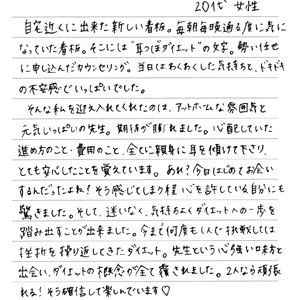 20代 女性
自宅近くに出来た新しい看板。毎朝毎晩通る度に気に
なっていた看板。そこには"耳つぼダイエット"の文字。勢い任せ
に申し込んだカウンセリング。当日はわくわくした気持ちと、ドキドキ
の不安感でいっぱいでした。
そんな私を迎え入れてくれたのは、アットホームな雰囲気と
元気いっぱいの先生。期待が膨れました。心配していた
進め方のこと・費用のこと、全てに親身に耳を傾けて下さり、
とても安心したことを覚えています。あれ？今日はじめてお会い
するんだったよね！そう感じてしまう程心を許している自分にも
驚きました。そして、迷いなく、気持ちよくダイエットへの一歩を
踏み出すことが出来ました。今まで何度も1人で挑戦しては
挫折を繰り返してきたダイエット。先生という心強い味方と
出会い、ダイエットの概念が全て覆されました。2人なら頑張
れる！そう確信して楽しんでいます♡